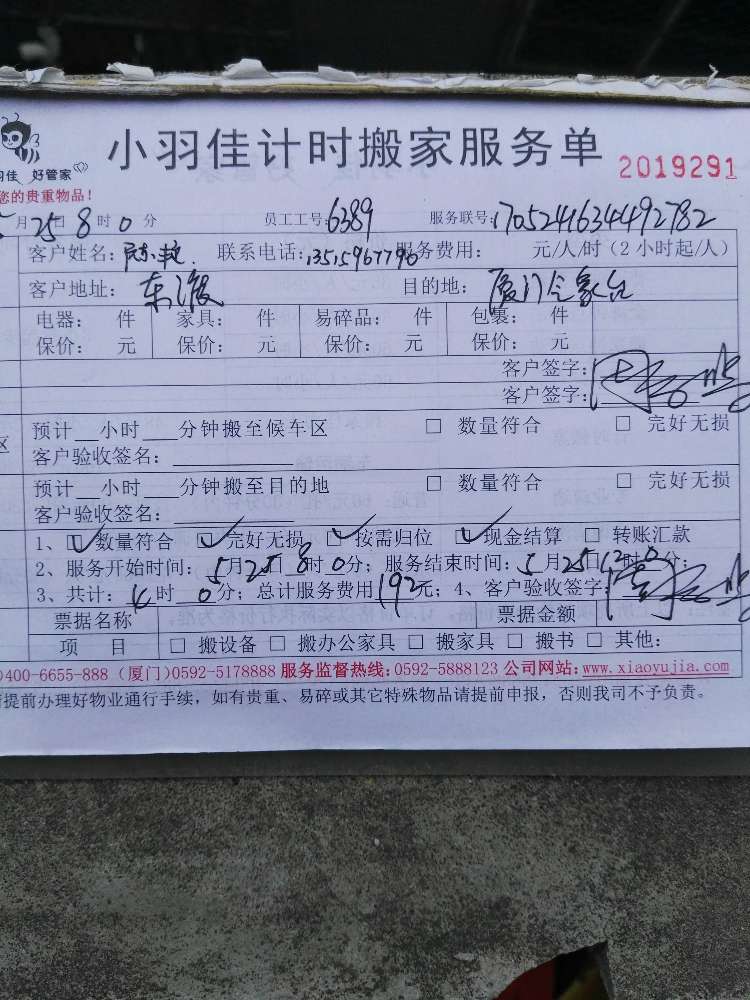 小羽佳计时搬家服务单 2019291
羽佳 好管家
您的贵重物品！
月25日8时0分 员工工号：6389 服务联号：1705241634492782
客户姓名： 联系电话：13515967790 服务费用： 元/人/时（2小时起/人）
客户地址：东渡 目的地：厦门气象台
电器： 件 家具： 件 易碎品： 件 包裹： 件
保价： 元 保价： 元 保价： 元 保价： 元
客户签字：
客户签字：
区 预计__小时___分钟搬至候车区 □ 数量符合 □ 完好无损
客户验收签名：
预计__小时___分钟搬至目的地 □ 数量符合 □ 完好无损
客户验收签名：
1、☑数量符合 ☑完好无损 ☑按需归位 ☑现金结算 □ 转账汇款
2、服务开始时间：5月25日8时0分；服务结束时间：5月25日12时0分；
3、共计：4时0分；总计服务费用192元；4、客户验收签字
票据名称 票据金额
项 目 □ 搬设备 □ 搬办公家具 □ 搬家具 □ 搬书 □ 其他：
)400-6655-888（厦门)0592-5178888 服务监督热线：0592-5888123 公司网站：www.xiaoyujia.com
请提前办理好物业通行手续，如有贵重、易碎或其它特殊物品请提前申报，否则我司不予负责。